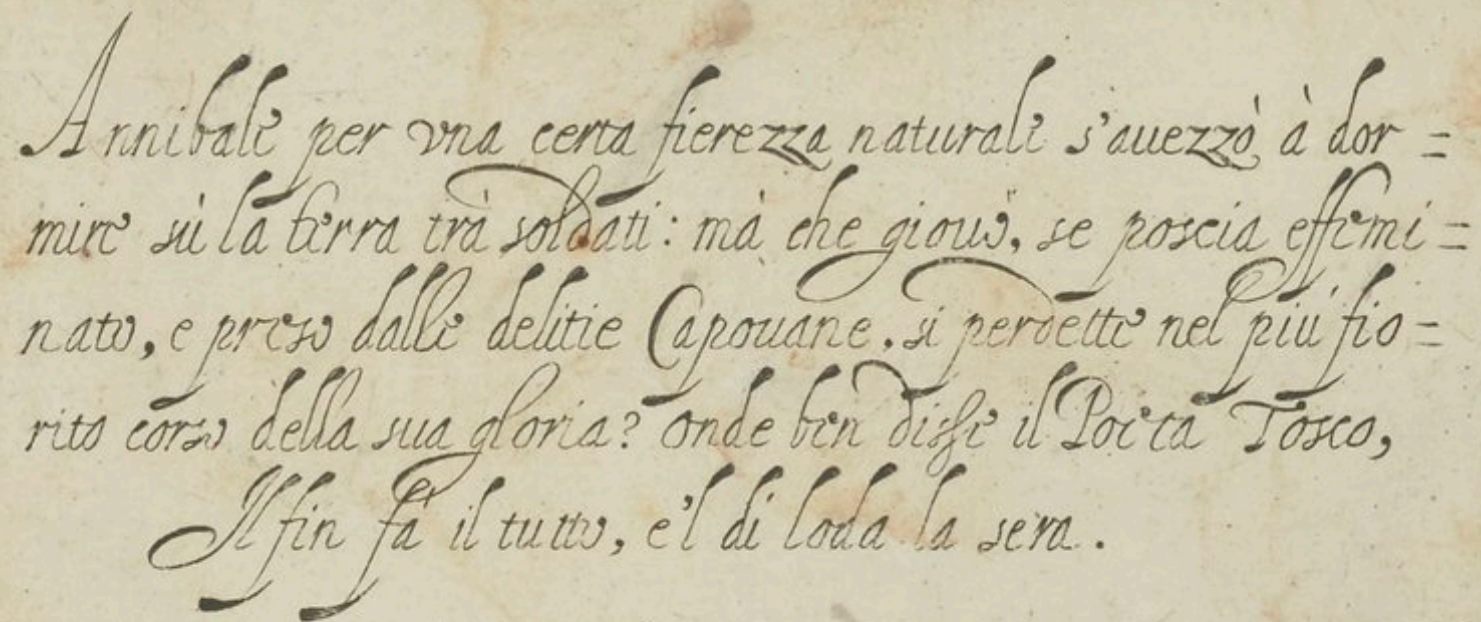 Annibale per vna certa fierezza naturale s'auezzò à dor=
mire sù la terra trà soldati: mà che giouò, se poscia effemi=
nato, e preso dalle delitie Capouane, si perdette nel più fio=
rito corso della sua gloria? onde ben disse il Poeta Tosco,
Il fin fà il tutto, e'l dì loda la sera.